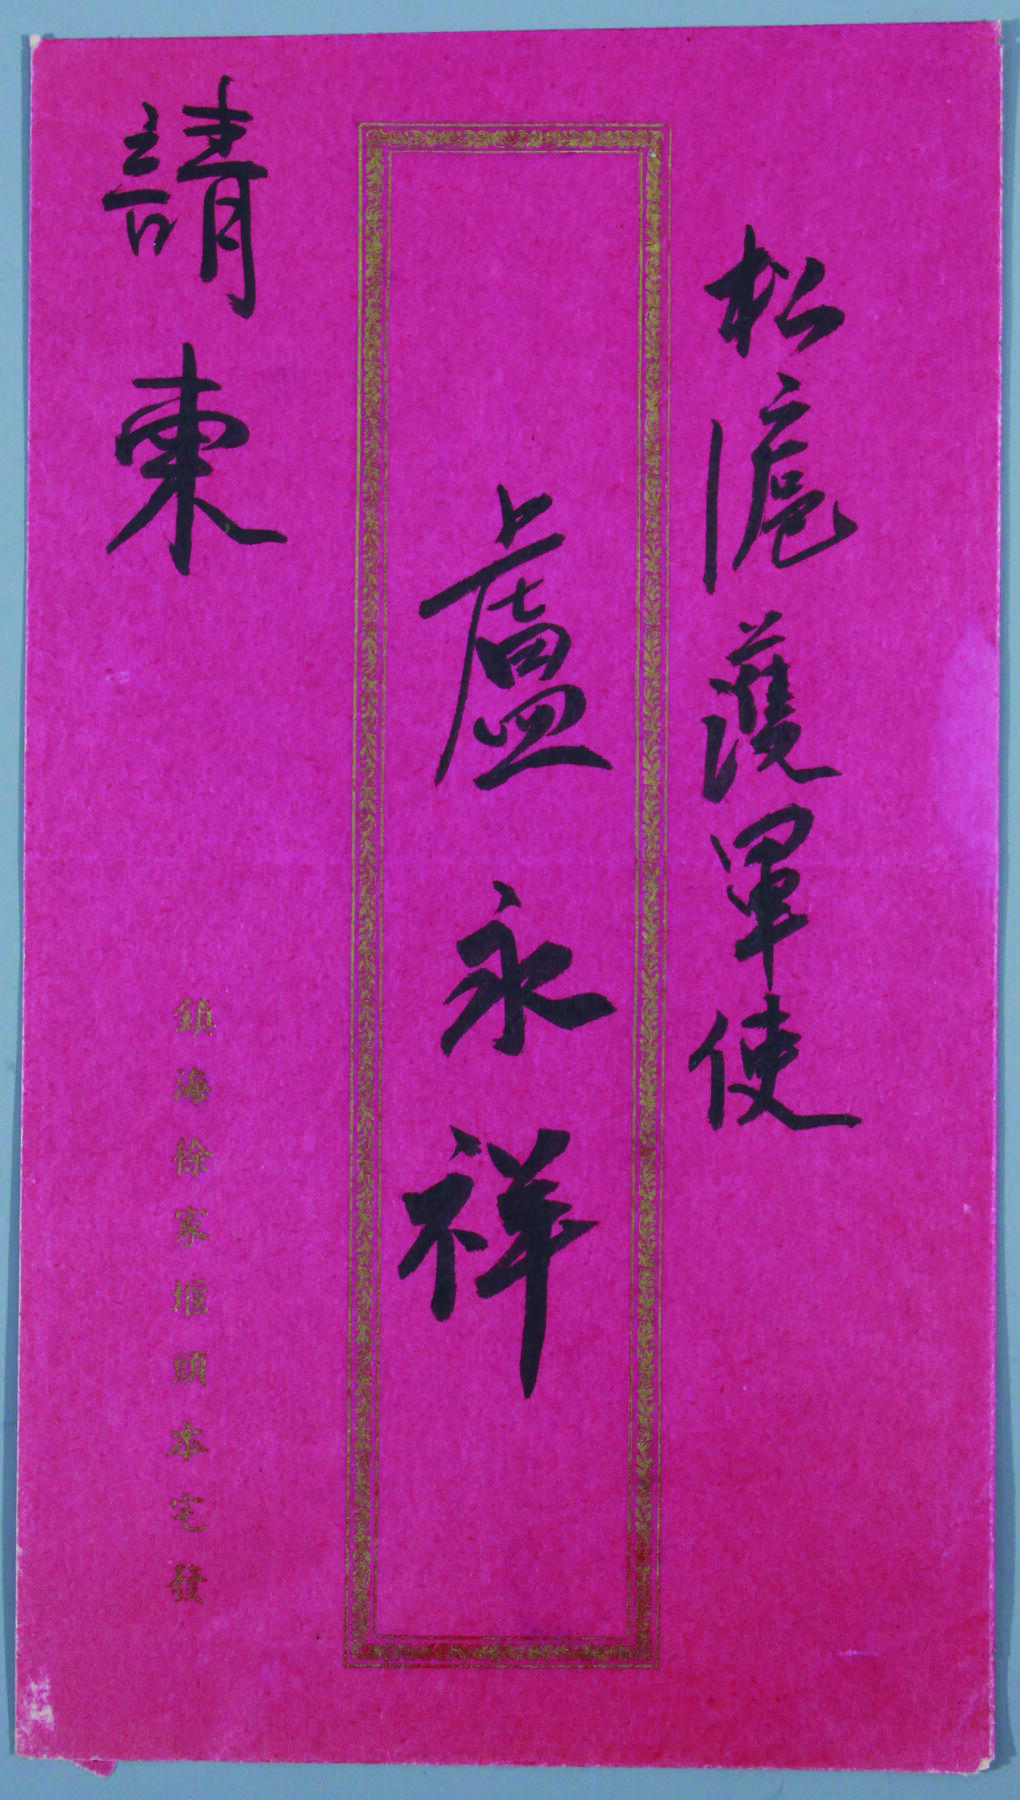 松滬護軍使
盧永祥
請柬
鎮海徐家堰頭本宅發